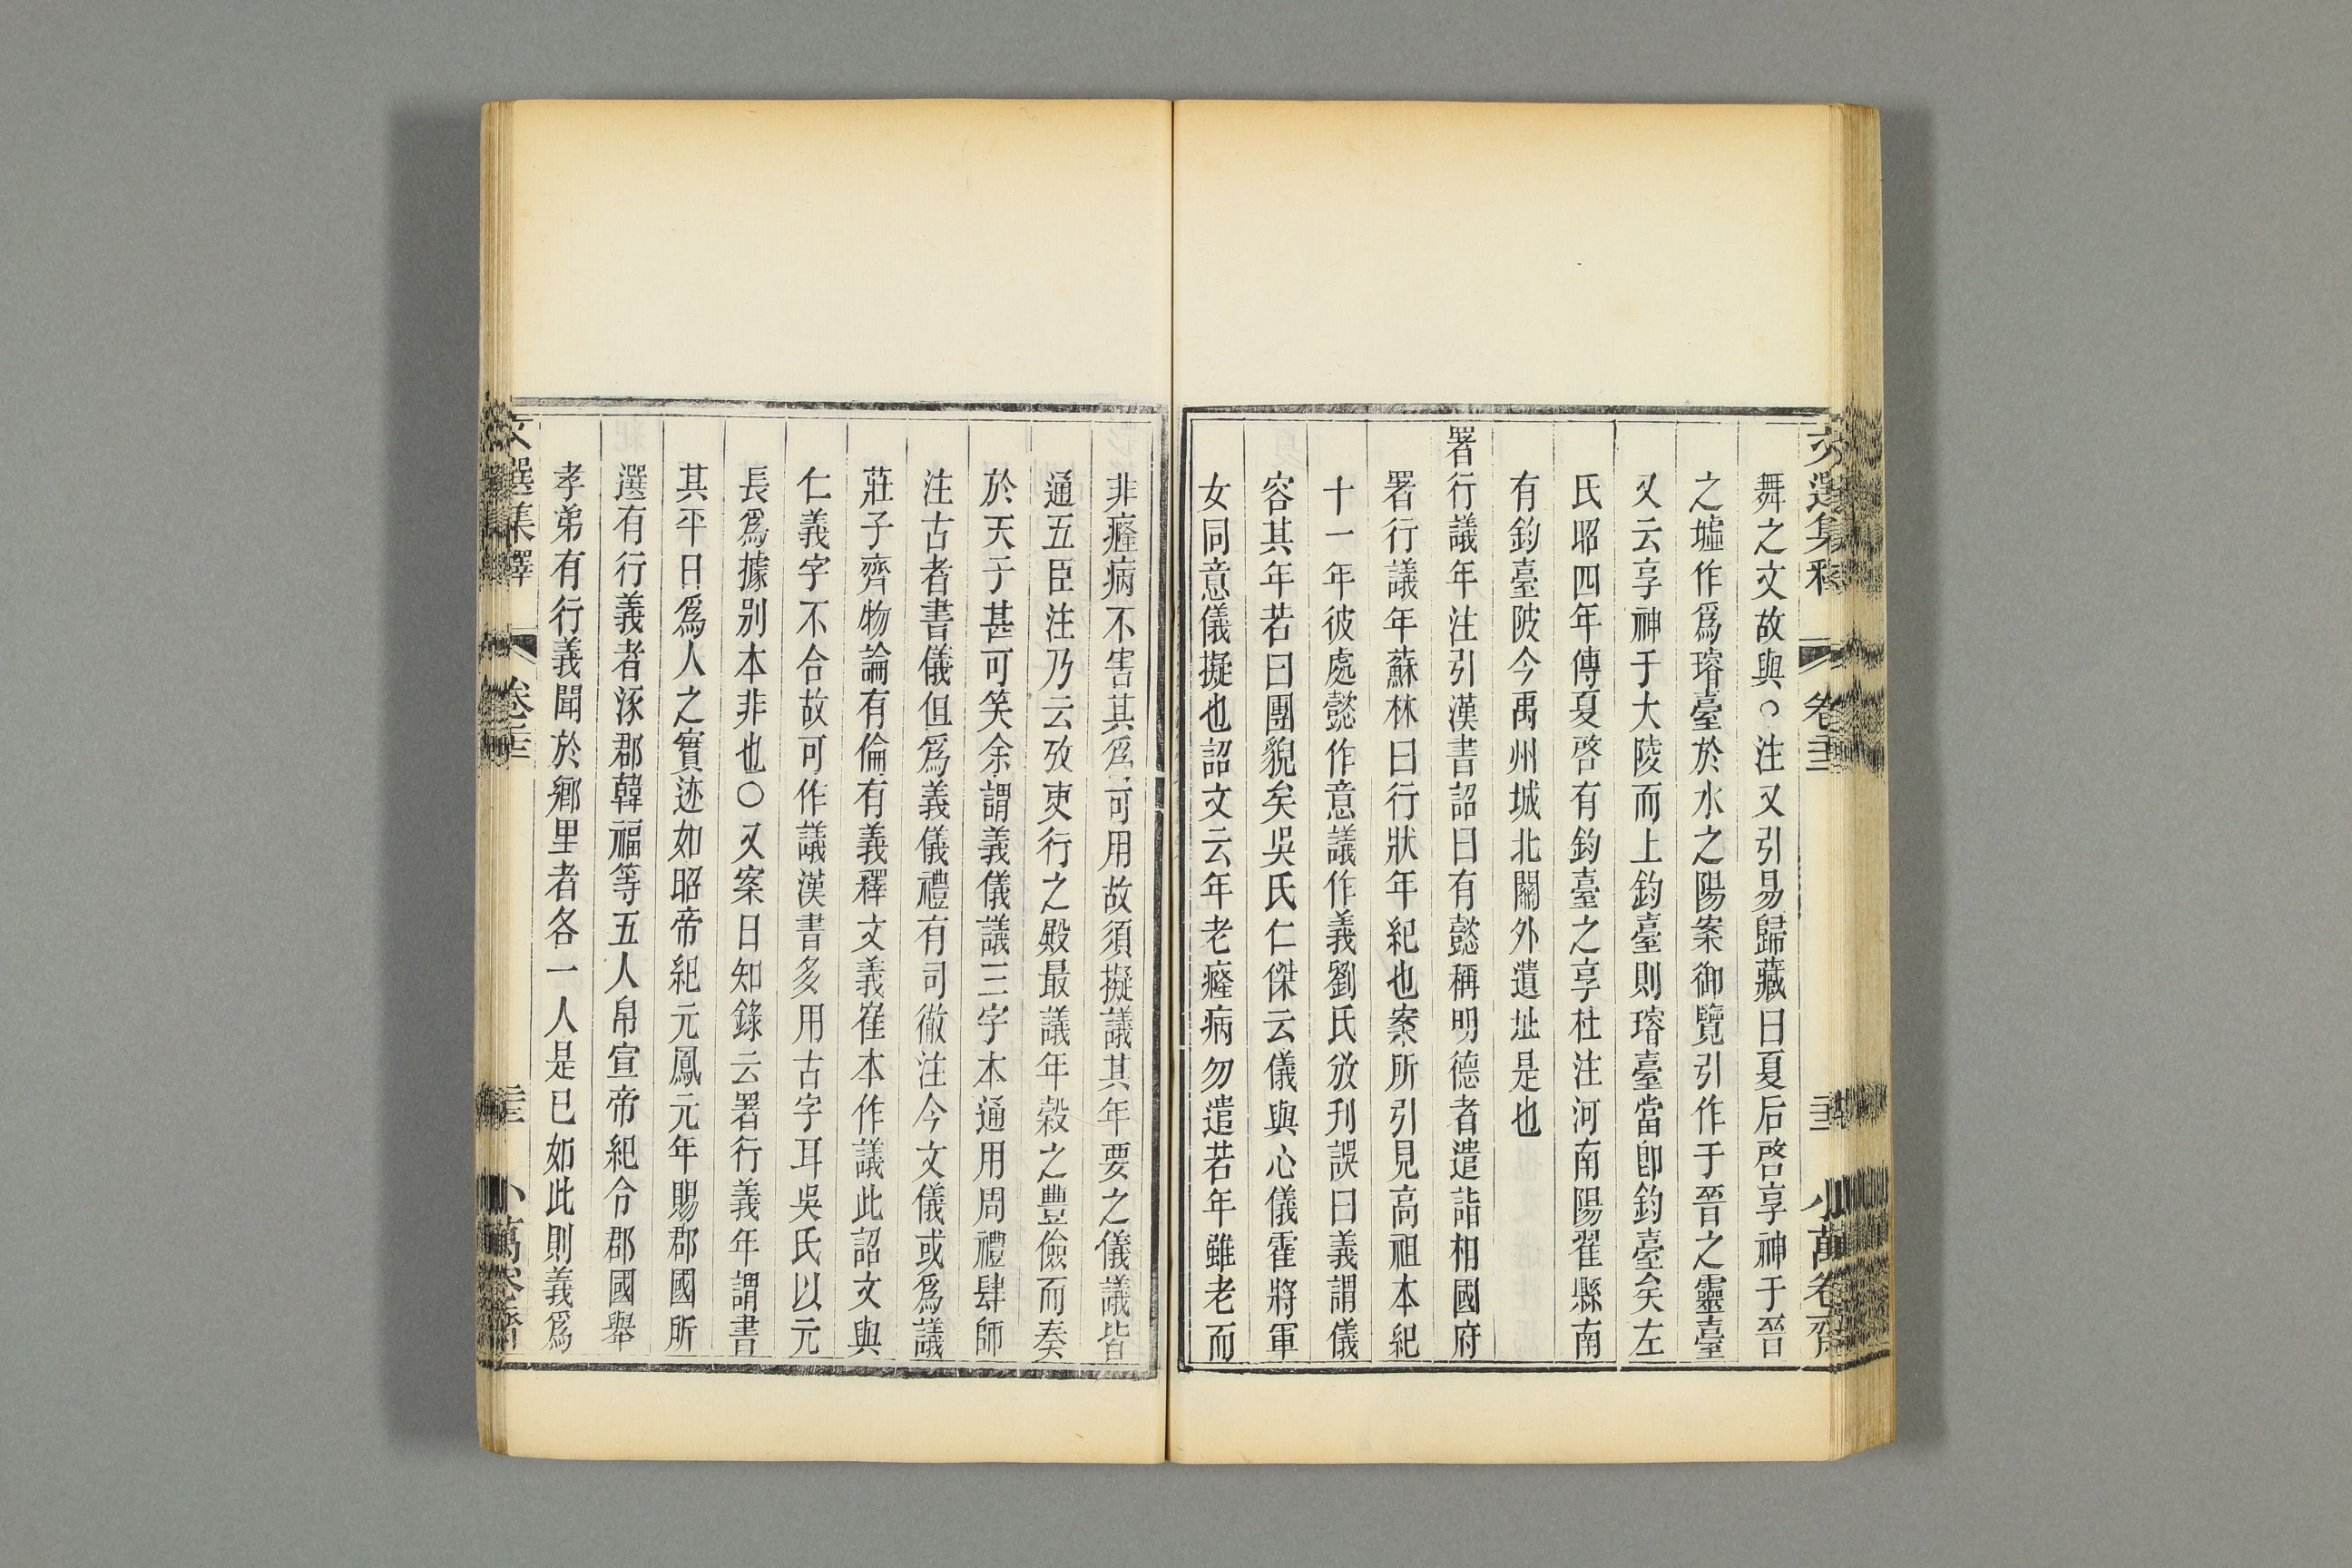 文選集釋 卷二十 小萬卷齋
舞之文故與○注又引易歸藏曰夏后啓享神于晉
之墟作爲璿臺於水之陽案御覽引作于晉之靈臺
又云享神于大陵而上鈞臺則璿臺當卽鈞臺矣左
氏昭四年傳夏啓有鈞臺之享杜注河南陽翟縣南
有鈞臺陂今禹州城北關外遺址是也
署行議年注引漢書詔曰有懿稱明德者遣詣相國府
署行議年蘇林曰行狀年紀也案所引見高祖本紀
十一年彼處懿作意議作義劉氏攽刊誤曰義謂儀
容其年若曰團貌矣吳氏仁傑云儀與心儀霍將軍
女同意儀擬也詔文云年老癃病勿遣若年雖老而
非癃病不害其爲可用故須擬議其年要之儀議皆
通五臣注乃云攷吏行之殿最議年穀之豐儉而奏
於天子甚可笑余謂義儀議三字本通用周禮肆師
注古者書儀但爲義儀禮有司徹注今文儀或爲議
莊子齊物論有倫有義釋文義崔本作議此詔文與
仁義字不合故可作議漢書多用古字耳吳氏以元
長爲據别本非也○又案日知錄云署行義年謂書
其平日爲人之實迹如昭帝紀元鳳元年賜郡國所
選有行義者涿郡韓福等五人帛宣帝紀令郡國舉
孝弟有行義聞於鄉里者各一人是已如此則義爲
文選集釋 卷二十 小萬卷齋